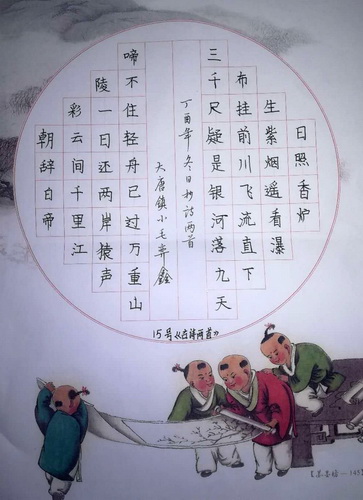 日照香炉
生紫烟遥看瀑
布挂前川飞流直下
三千尺疑是银河落九天
朝辞白帝
彩云间千里江
陵一日还两岸猿声
啼不住轻舟已过万重山
丁酉年冬日抄诗两首
大唐镇小毛鑫
15号《古诗两首》